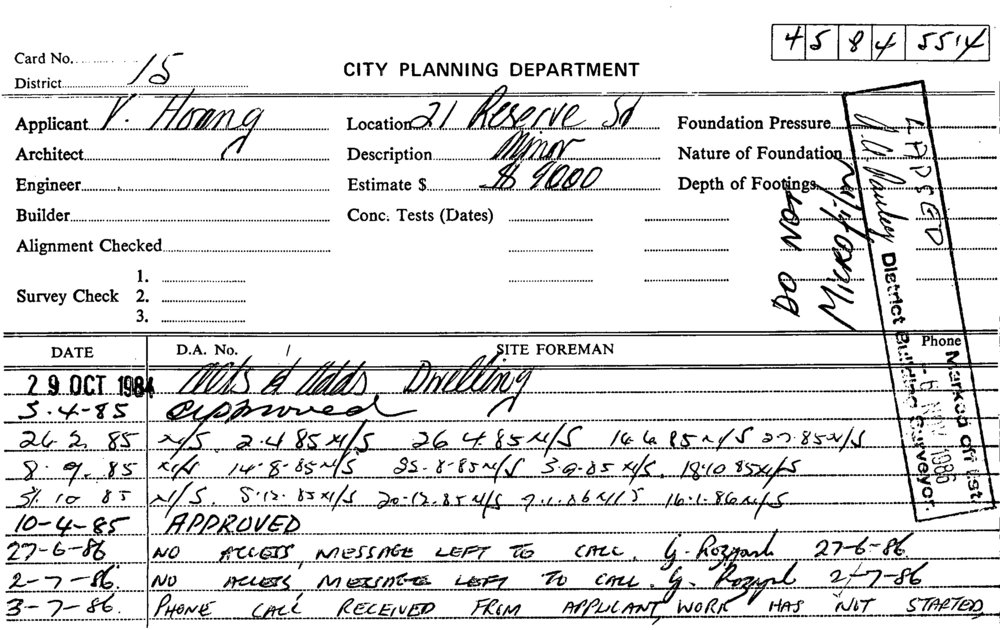 45 8 4 5514
Card No.
District 15
CITY PLANNING DEPARTMENT
Applicant V. Hoang
Location 21 Reserve St
Foundation Pressure
Architect
Description Minor
Nature of Foundation
Engineer
Estimate $ $ 9000
Depth of Footings
Builder
Conc. Tests (Dates)
Alignment Checked
Survey Check
1.
2.
3.
DO NOT
Microfilm
LAPSED
District Building Surveyor.
Marked off List
6 NOV 1986
DATE
D.A. No.
SITE FOREMAN
Phone
29 OCT 1984 Alts & Adds Dwelling
3.4-85 approved
26 2 85 N/S 2.4 85 N/S 26 4.85 N/S 85 N/S 85 N/S
8.9.85 N/S 14-8-85 N/S 85 N/S 85 N/S 18.10 85 N/S
10 85 N/S 5.12.85 N/S 20.12.85 N/S 7.1.86 N/S 16.1.86 N/S
10-4-85 APPROVED
27-6-86 NO ACCESS, MESSAGE LEFT TO CALL. G. 27-6-86
2-7-86. NO ACCESS, MESSAGE LEFT TO CALL. G. 2-7-86
3-7-86. PHONE CALL RECEIVED FROM APPLICANT, WORK HAS NOT STARTED,